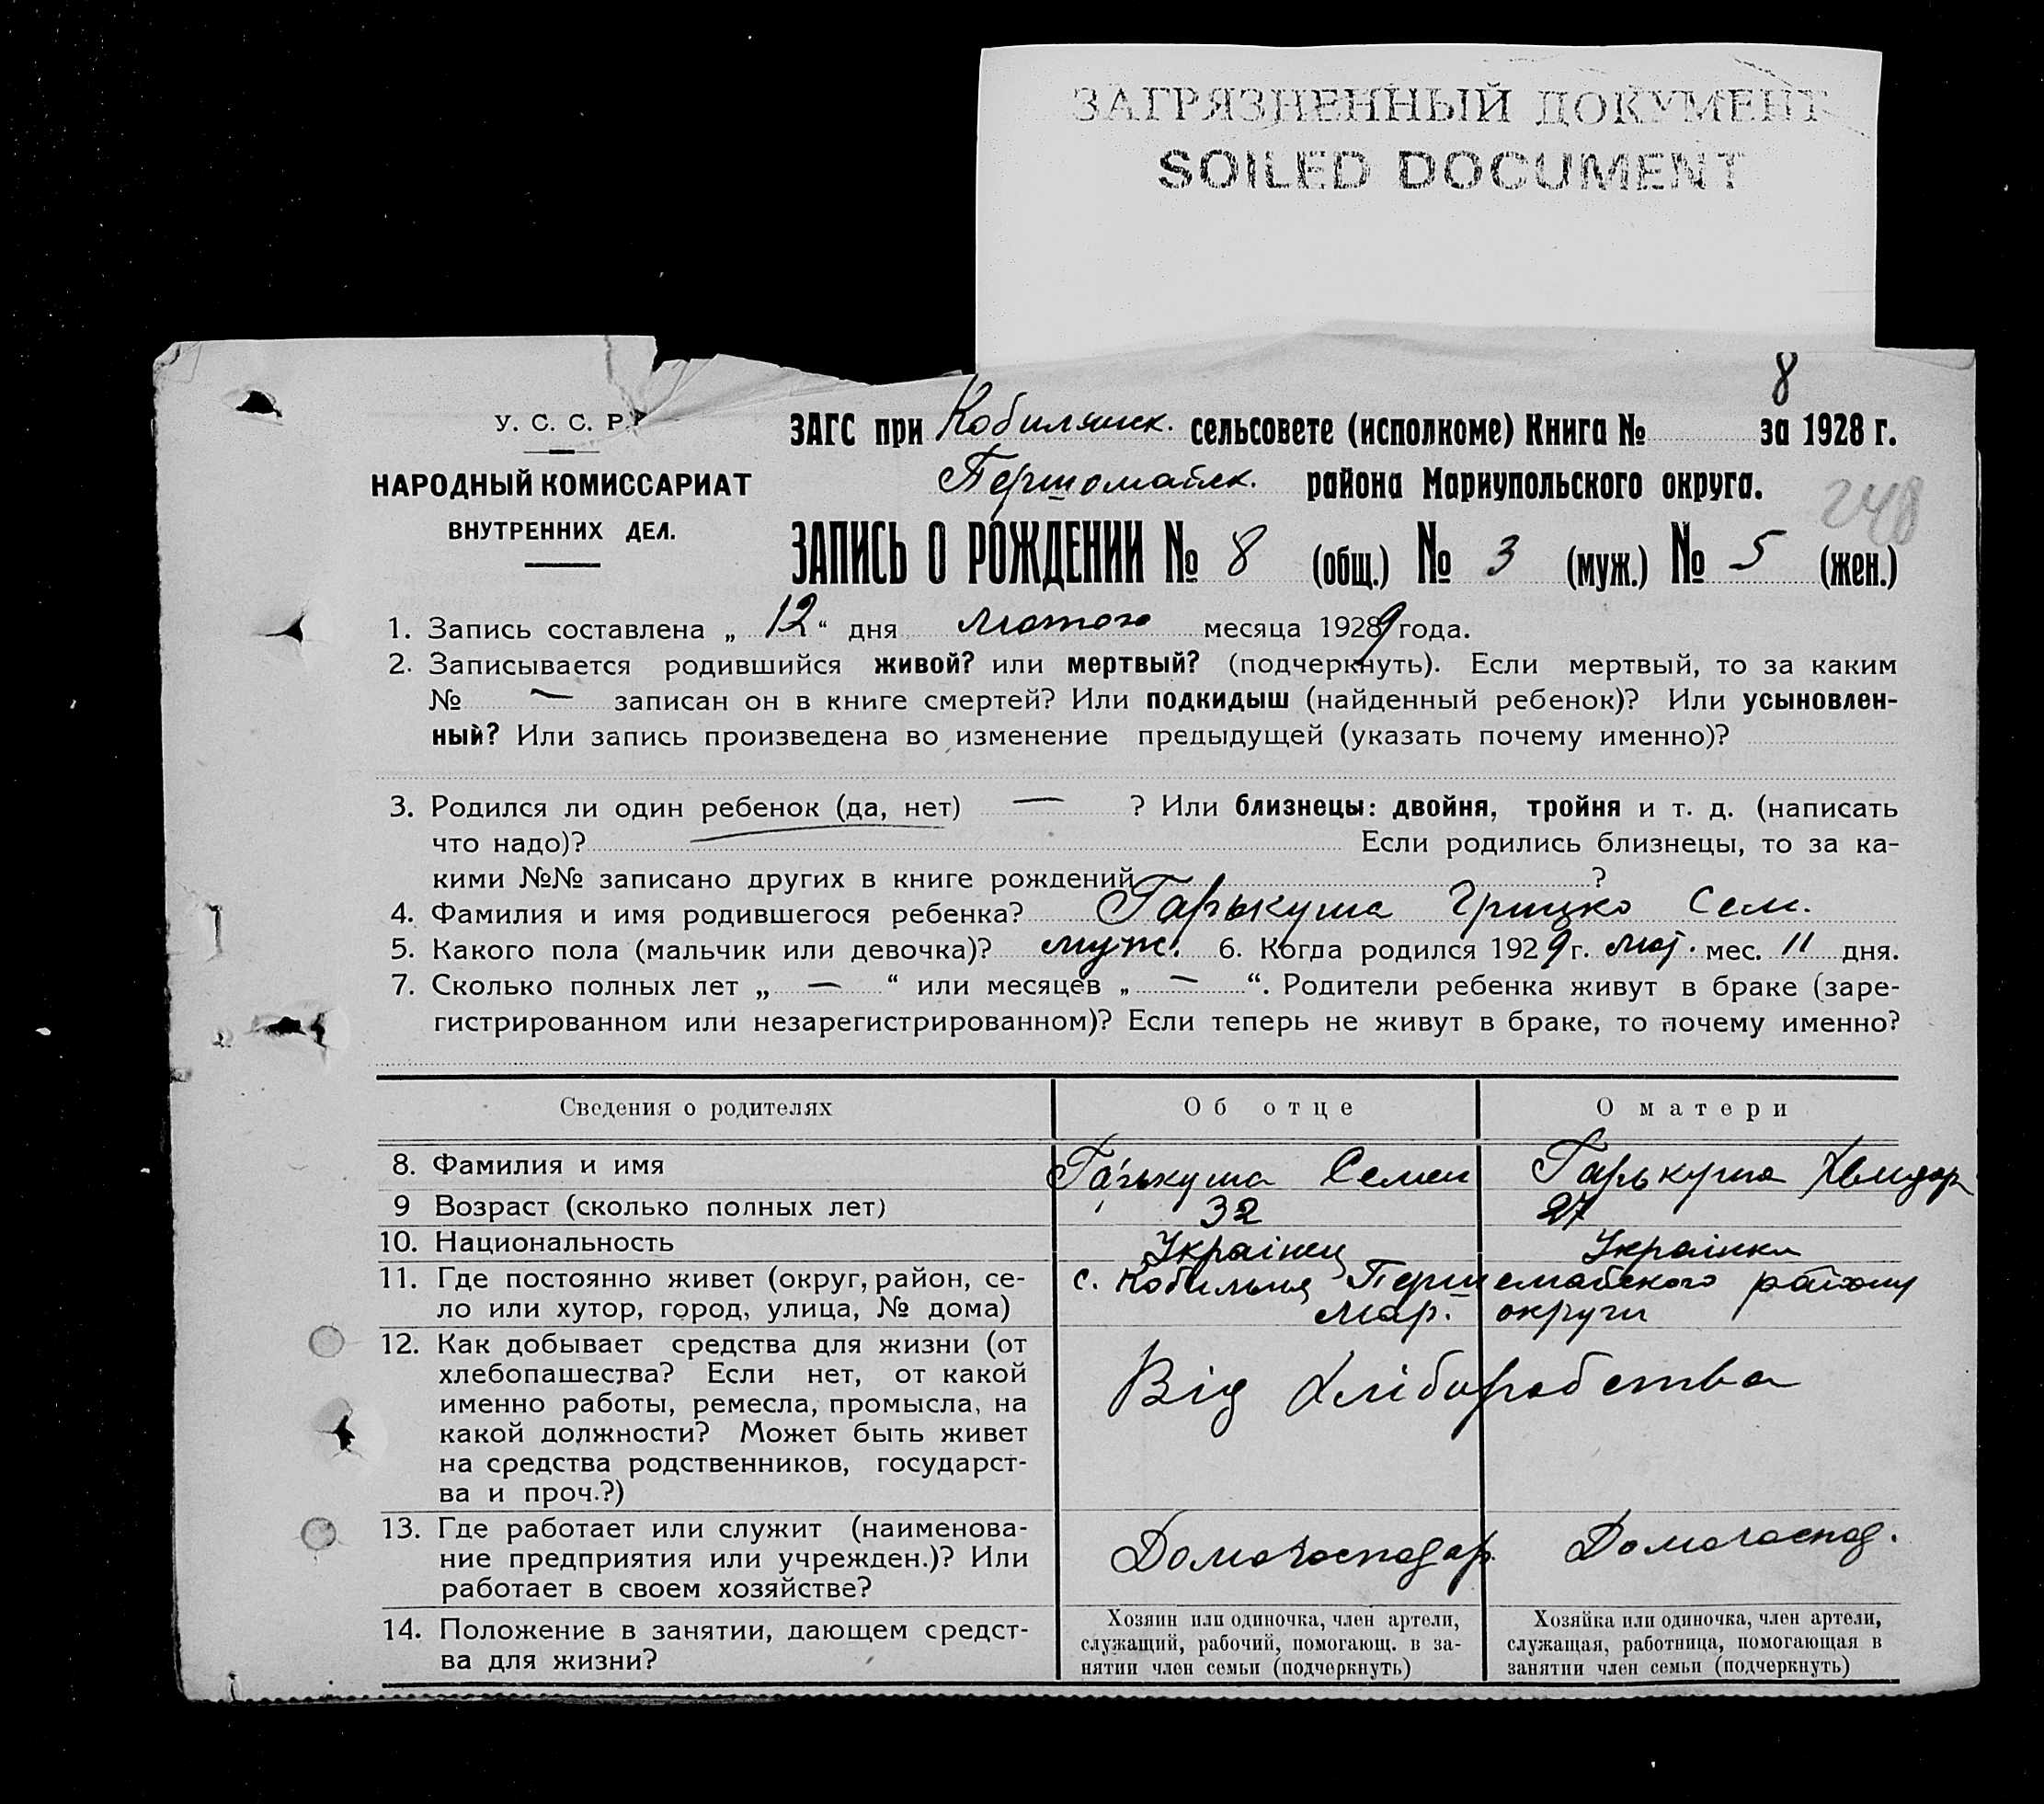 ЗАГРЯЗНЕННЫЙ ДОКУМЕНТ
SOILED DOCUMENT
8
У. С. С. Р.
НАРОДНЫЙ КОМИССАРИАТ
ВНУТРЕННИХ ДЕЛ.
ЗАГС при Кобилянск. сельсовете (исполкоме) Книга № за 1928 г.
Першомайск. района Мариупольского округа.
248
ЗАПИСЬ О РОЖДЕНИИ № 8 (общ.) № 3 (муж.) № 5 (жен.)
1. Запись составлена „ 12 “ дня лютого месяца 19289 года.
2. Записывается родившийся живой? или мертвый? (подчеркнуть). Если мертвый, то за каким
№ — записан он в книге смертей? Или подкидыш (найденный ребенок)? Или усыновлен-
ный? Или запись произведена во изменение предыдущей (указать почему именно)?
3. Родился ли один ребенок (да, нет) — ? Или близнецы: двойня, тройня и т. д. (написать
что надо)? Если родились близнецы, то за ка-
кими №№ записано других в книге рождений ?
4. Фамилия и имя родившегося ребенка? Гарькуша Грицко Сем.
5. Какого пола (мальчик или девочка)? муж. 6. Когда родился 1929 г. лют. мес. 11 дня.
7. Сколько полных лет „ — “ или месяцев „ — “. Родители ребенка живут в браке (заре-
гистрированном или незарегистрированном)? Если теперь не живут в браке, то почему именно?
Сведения о родителях Об отце О матери
8. Фамилия и имя Гарькуша Семен Гарькуша
9 Возраст (сколько полных лет) 32 27
10. Национальность Українец Українка
11. Где постоянно живет (округ, район, се-
ло или хутор, город, улица, № дома)
с. Кобильня Першомайского району
Мар. округи
12. Как добывает средства для жизни (от
хлебопашества? Если нет, от какой
именно работы, ремесла, промысла, на
какой должности? Может быть живет
на средства родственников, государст-
ва и проч.?)
Від хліборобства
13. Где работает или служит (наименова-
ние предприятия или учрежден.)? Или
работает в своем хозяйстве?
Домогосподар. Домогоспод.
14. Положение в занятии, дающем средст-
ва для жизни?
Хозяин или одиночка, член артели,
служащий, рабочий, помогающ. в за-
нятии член семьи (подчеркнуть)
Хозяйка или одиночка, член артели,
служащая, работница, помогающая в
занятии член семьи (подчеркнуть)